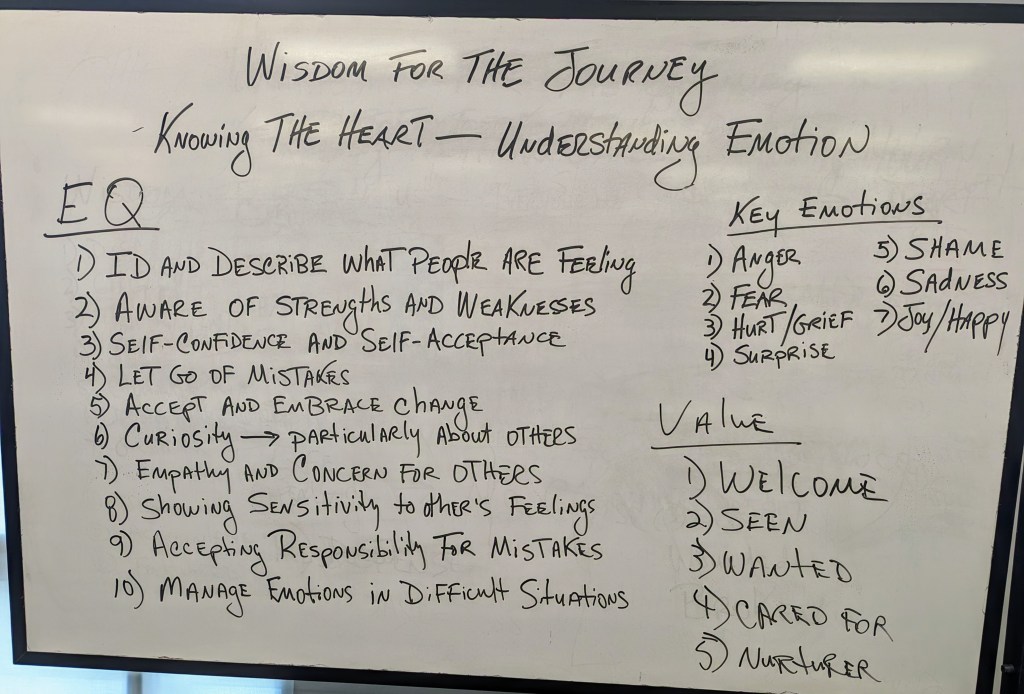 WISDOM FOR THE JOURNEY
KNOWING THE HEART — UNDERSTANDING EMOTION
EQ
1) ID AND DESCRIBE WHAT PEOPLE ARE FEELING
2) AWARE OF STRENGTHS AND WEAKNESSES
3) SELF-CONFIDENCE AND SELF-ACCEPTANCE
4) LET GO OF MISTAKES
5) ACCEPT AND EMBRACE CHANGE
6) CURIOSITY → PARTICULARLY ABOUT OTHERS
7) EMPATHY AND CONCERN FOR OTHERS
8) SHOWING SENSITIVITY TO OTHER'S FEELINGS
9) ACCEPTING RESPONSIBILITY FOR MISTAKES
10) MANAGE EMOTIONS IN DIFFICULT SITUATIONS
KEY EMOTIONS
1) ANGER
2) FEAR
3) HURT/GRIEF
4) SURPRISE
5) SHAME
6) SADNESS
7) JOY/HAPPY
VALUE
1) WELCOME
2) SEEN
3) WANTED
4) CARED FOR
5) NURTURER